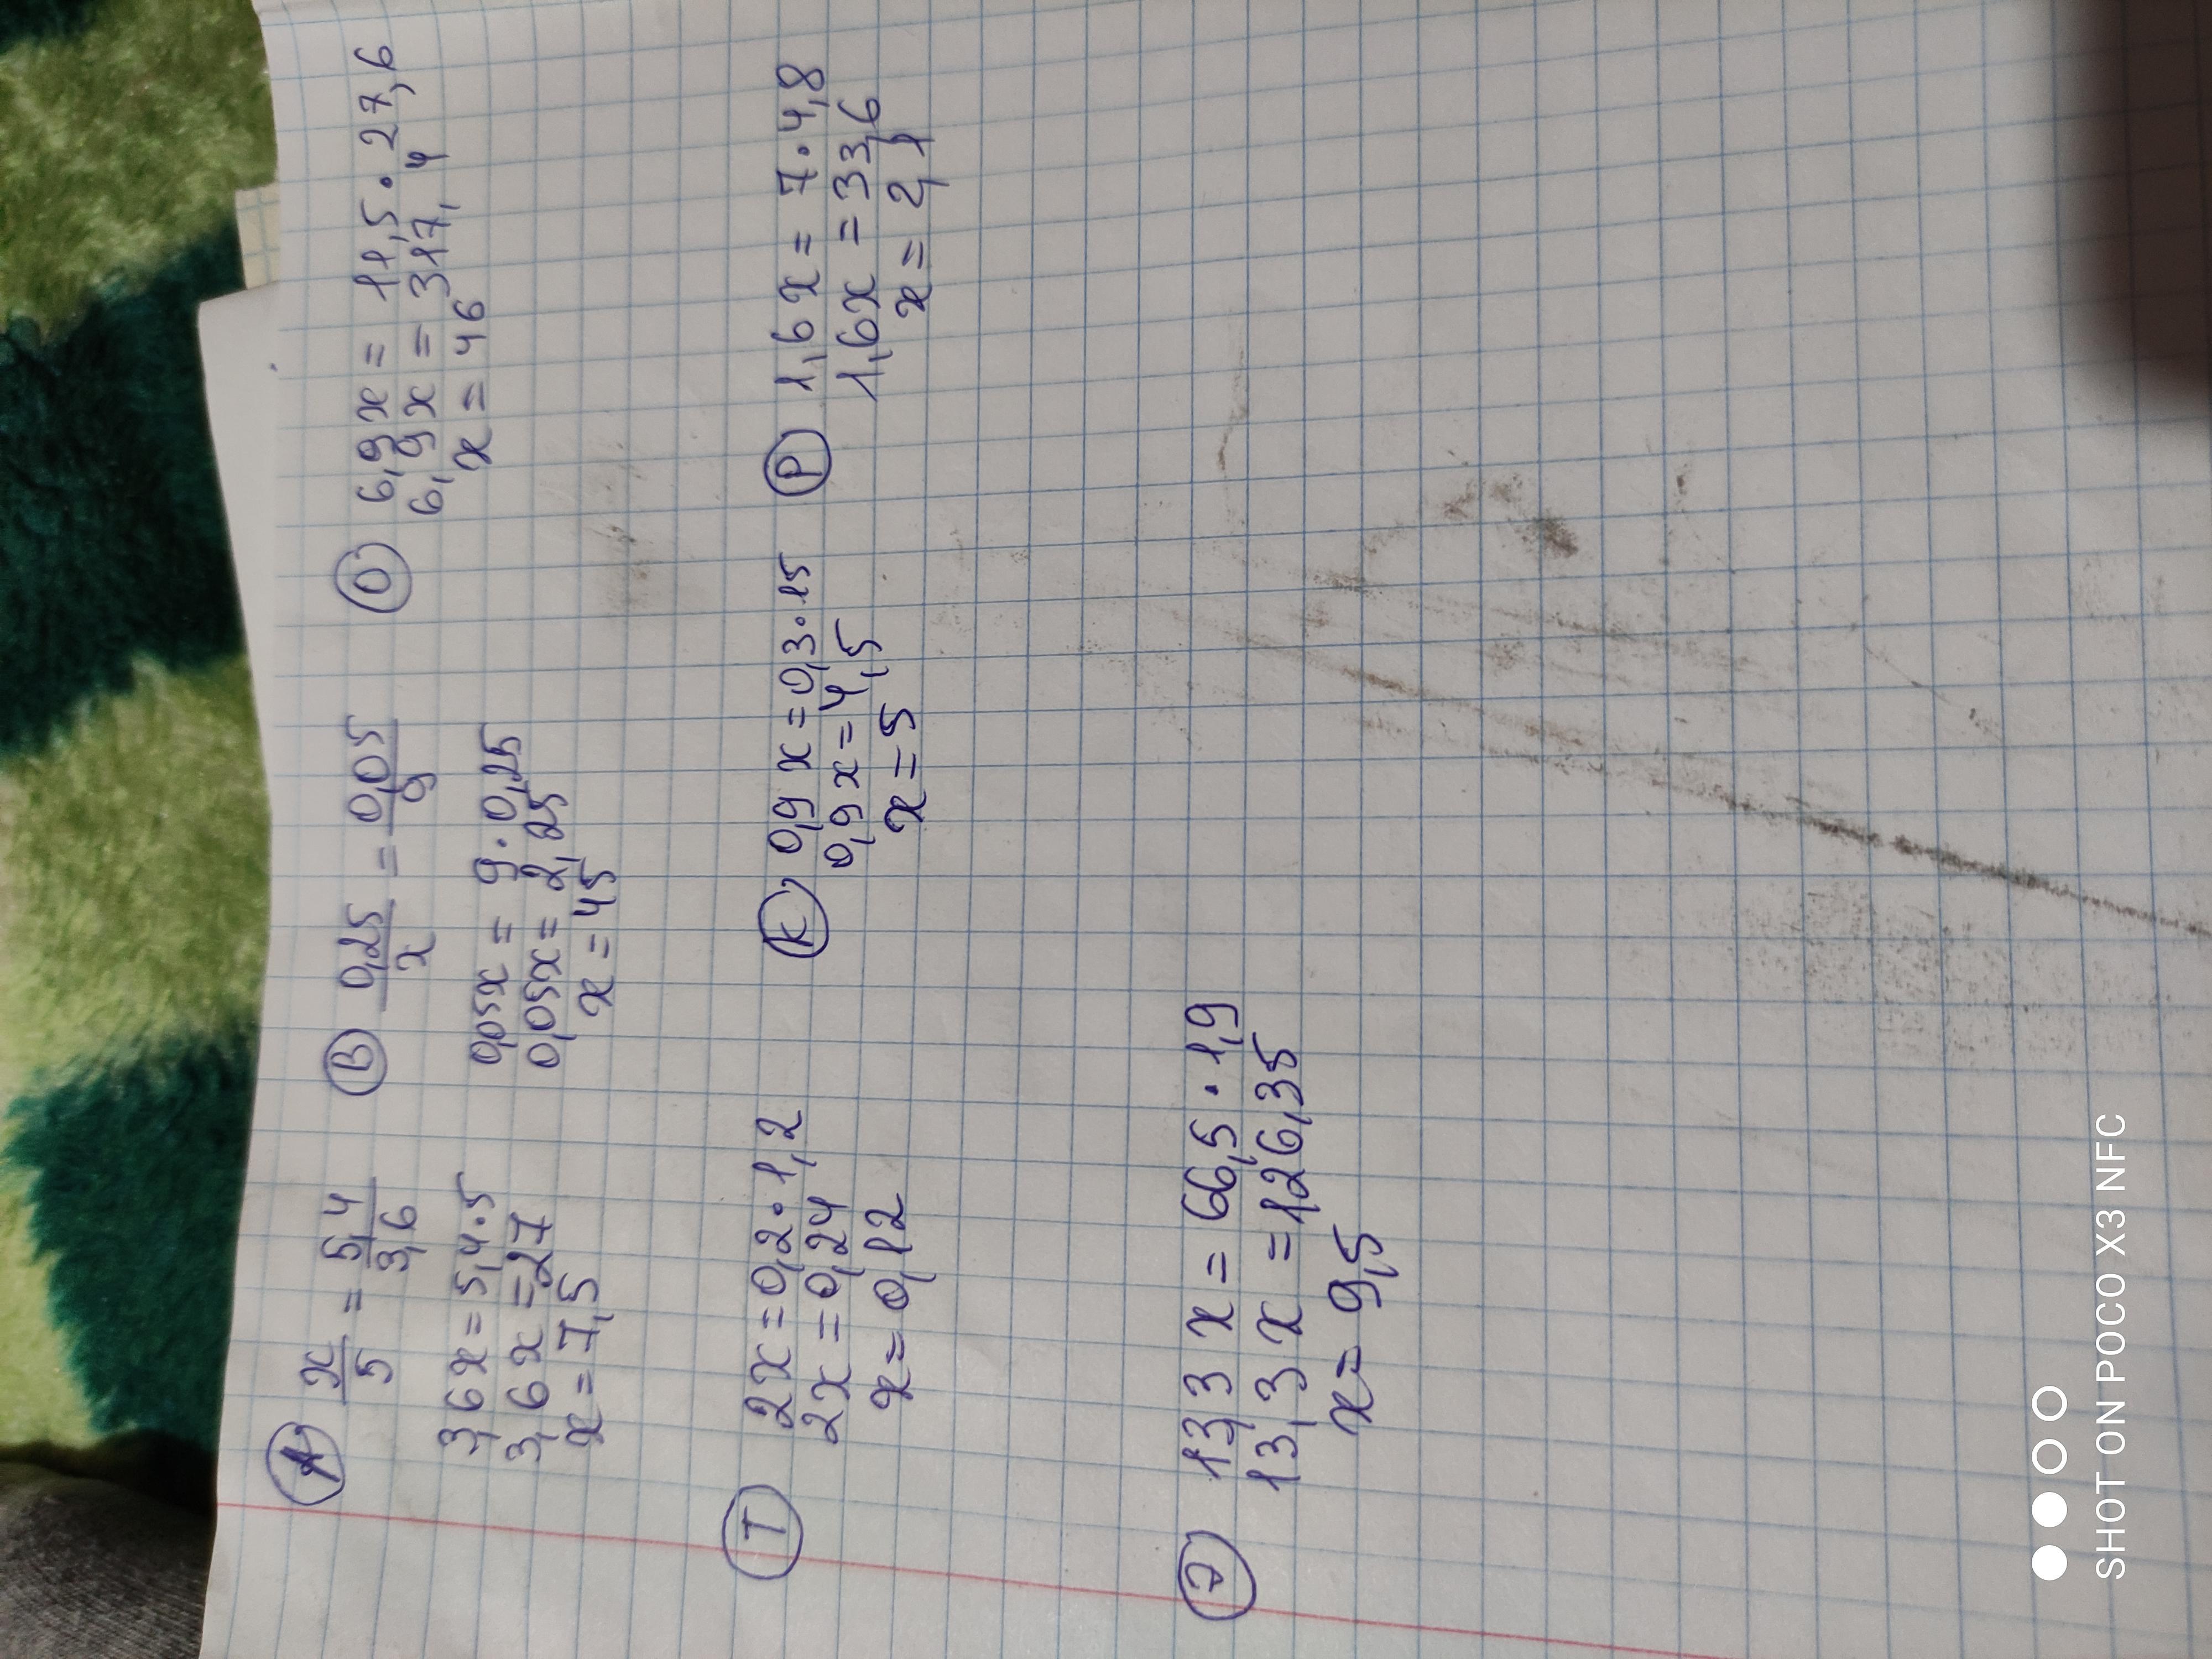 А x/5 = 5,4/3,6
3,6x = 5,4·5
3,6x = 27
x = 7,5
В 0,25/x = 0,05/9
0,05x = 9·0,25
0,05x = 2,25
x = 45
О 6,9x = 11,5·27,6
6,9x = 317,4
x = 46
Т 2x = 0,2·1,2
2x = 0,24
x = 0,12
К 0,9x = 0,3·15
0,9x = 4,5
x = 5
Р 1,6x = 7·4,8
1,6x = 33,6
x = 2,1
13,3x = 66,5·1,9
13,3x = 126,35
x = 9,5
SHOT ON POCO X3 NFC